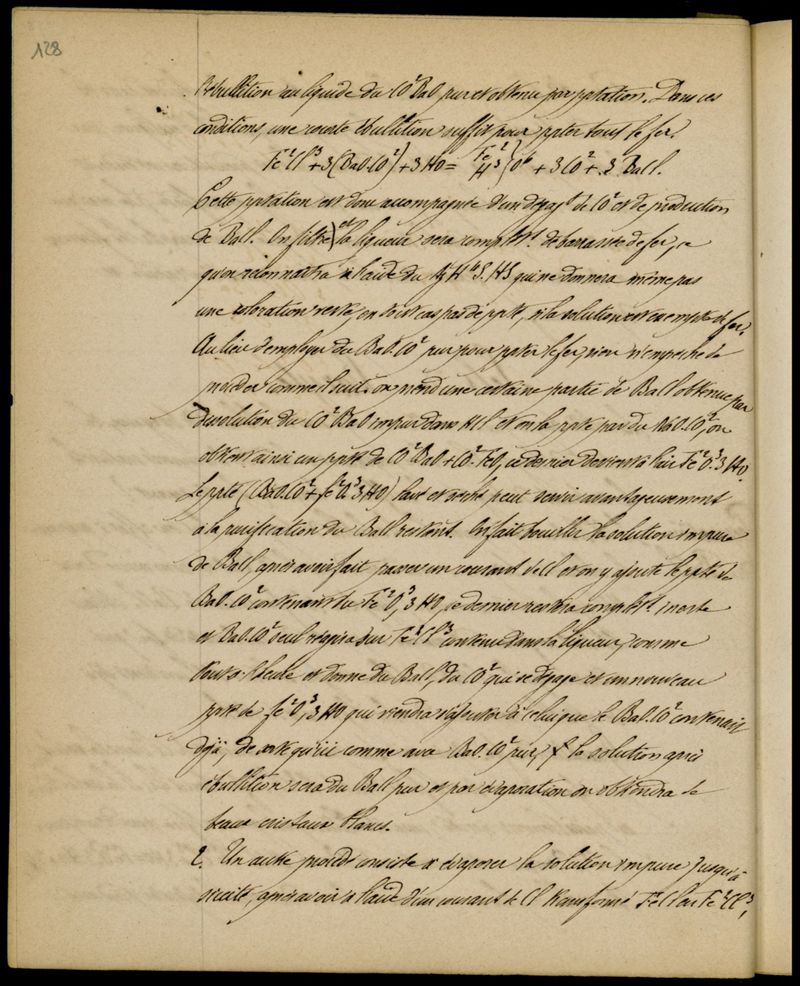 128
l'ébullition au liquide du CO² BaO pur et obtenu par pptation. Dans ces
conditions, une courte ébullition suffit pour ppter tout le fer.
Fe²Cl³ + 3(BaO.CO²) + 3HO = Fe² H³ } O⁶ + 3CO² + 3 BaCl.
Cette pptation est donc accompagnée d'un dégagt de CO² et de production
de BaCl. On filtre et la liqueur sera complètt. débarrassée de fer, ce
qu'on reconnaitra à l'aide du HS qui ne donnera même pas
une coloration verte, en tout cas pas de ppté, si la solution est exempte de fer.
Au lieu d'employer du BaO.CO² pur pour ppter le fer, rien n'empêche de
procéder comme il suit. on prend une certaine partie de BaCl obtenue par
dissolution du CO² BaO impur dans HCl et on la ppte par du NaO.CO², on
obtient ainsi un ppté de CO² BaO + CO² FeO, ce dernier devient à l'air Fe²O³ 3HO.
Le ppté (BaO.CO² + Fe²O³ 3HO) lavé et séché peut servir avantageusement
à la purification du BaCl restant. On fait bouillir la solution impure
de BaCl, après avoir fait passer un courant de Cl et on y ajoute le ppté de
BaO.CO² contenant du Fe²O³, 3HO, ce dernier restera complètt. inerte
et BaO.CO² seul réagira sur Fe²Cl³ contenu dans la liqueur, comme
tout à l'heure et donne du BaCl, du CO² qui se dégage et un nouveau
ppté de Fe²O³, 3HO qui viendra s'ajouter à celui que le BaO.CO² contenait
déjà, de sorte qu'ici comme avec BaO.CO² pur, la solution après
ébullition sera du BaCl pur et par évaporation on obtiendra de
beaux cristaux blancs.
2. Un autre procédé consiste à évaporer la solution impure jusqu'à
siccité, après avoir à l'aide d'un courant de Cl transformé FeCl en Fe²Cl³,